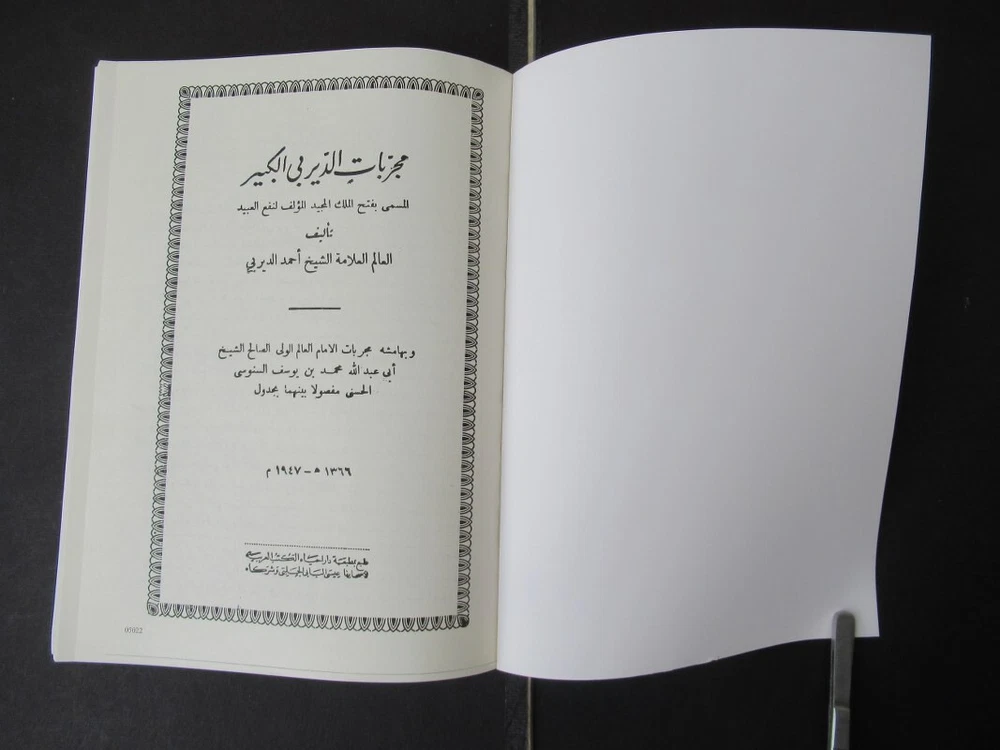 مجرّبات الدّيربي الكبير
المسمى بفتح الملك المجيد المؤلف لنفع العبيد
تأليف
العالم العلامة الشيخ أحمد الديربي
وبهامشه مجربات الامام العالم الولى الصالح الشيخ
أبي عبد الله محمد بن يوسف السنوسى
الحسنى مفصولا بينهما بجدول
١٣٦٦ ه – ١٩٤٧ م
طبع بمطبعة دار إحياء الكتب العربية
لأصحابها عيسى البابى الحلبى وشركاه
05022